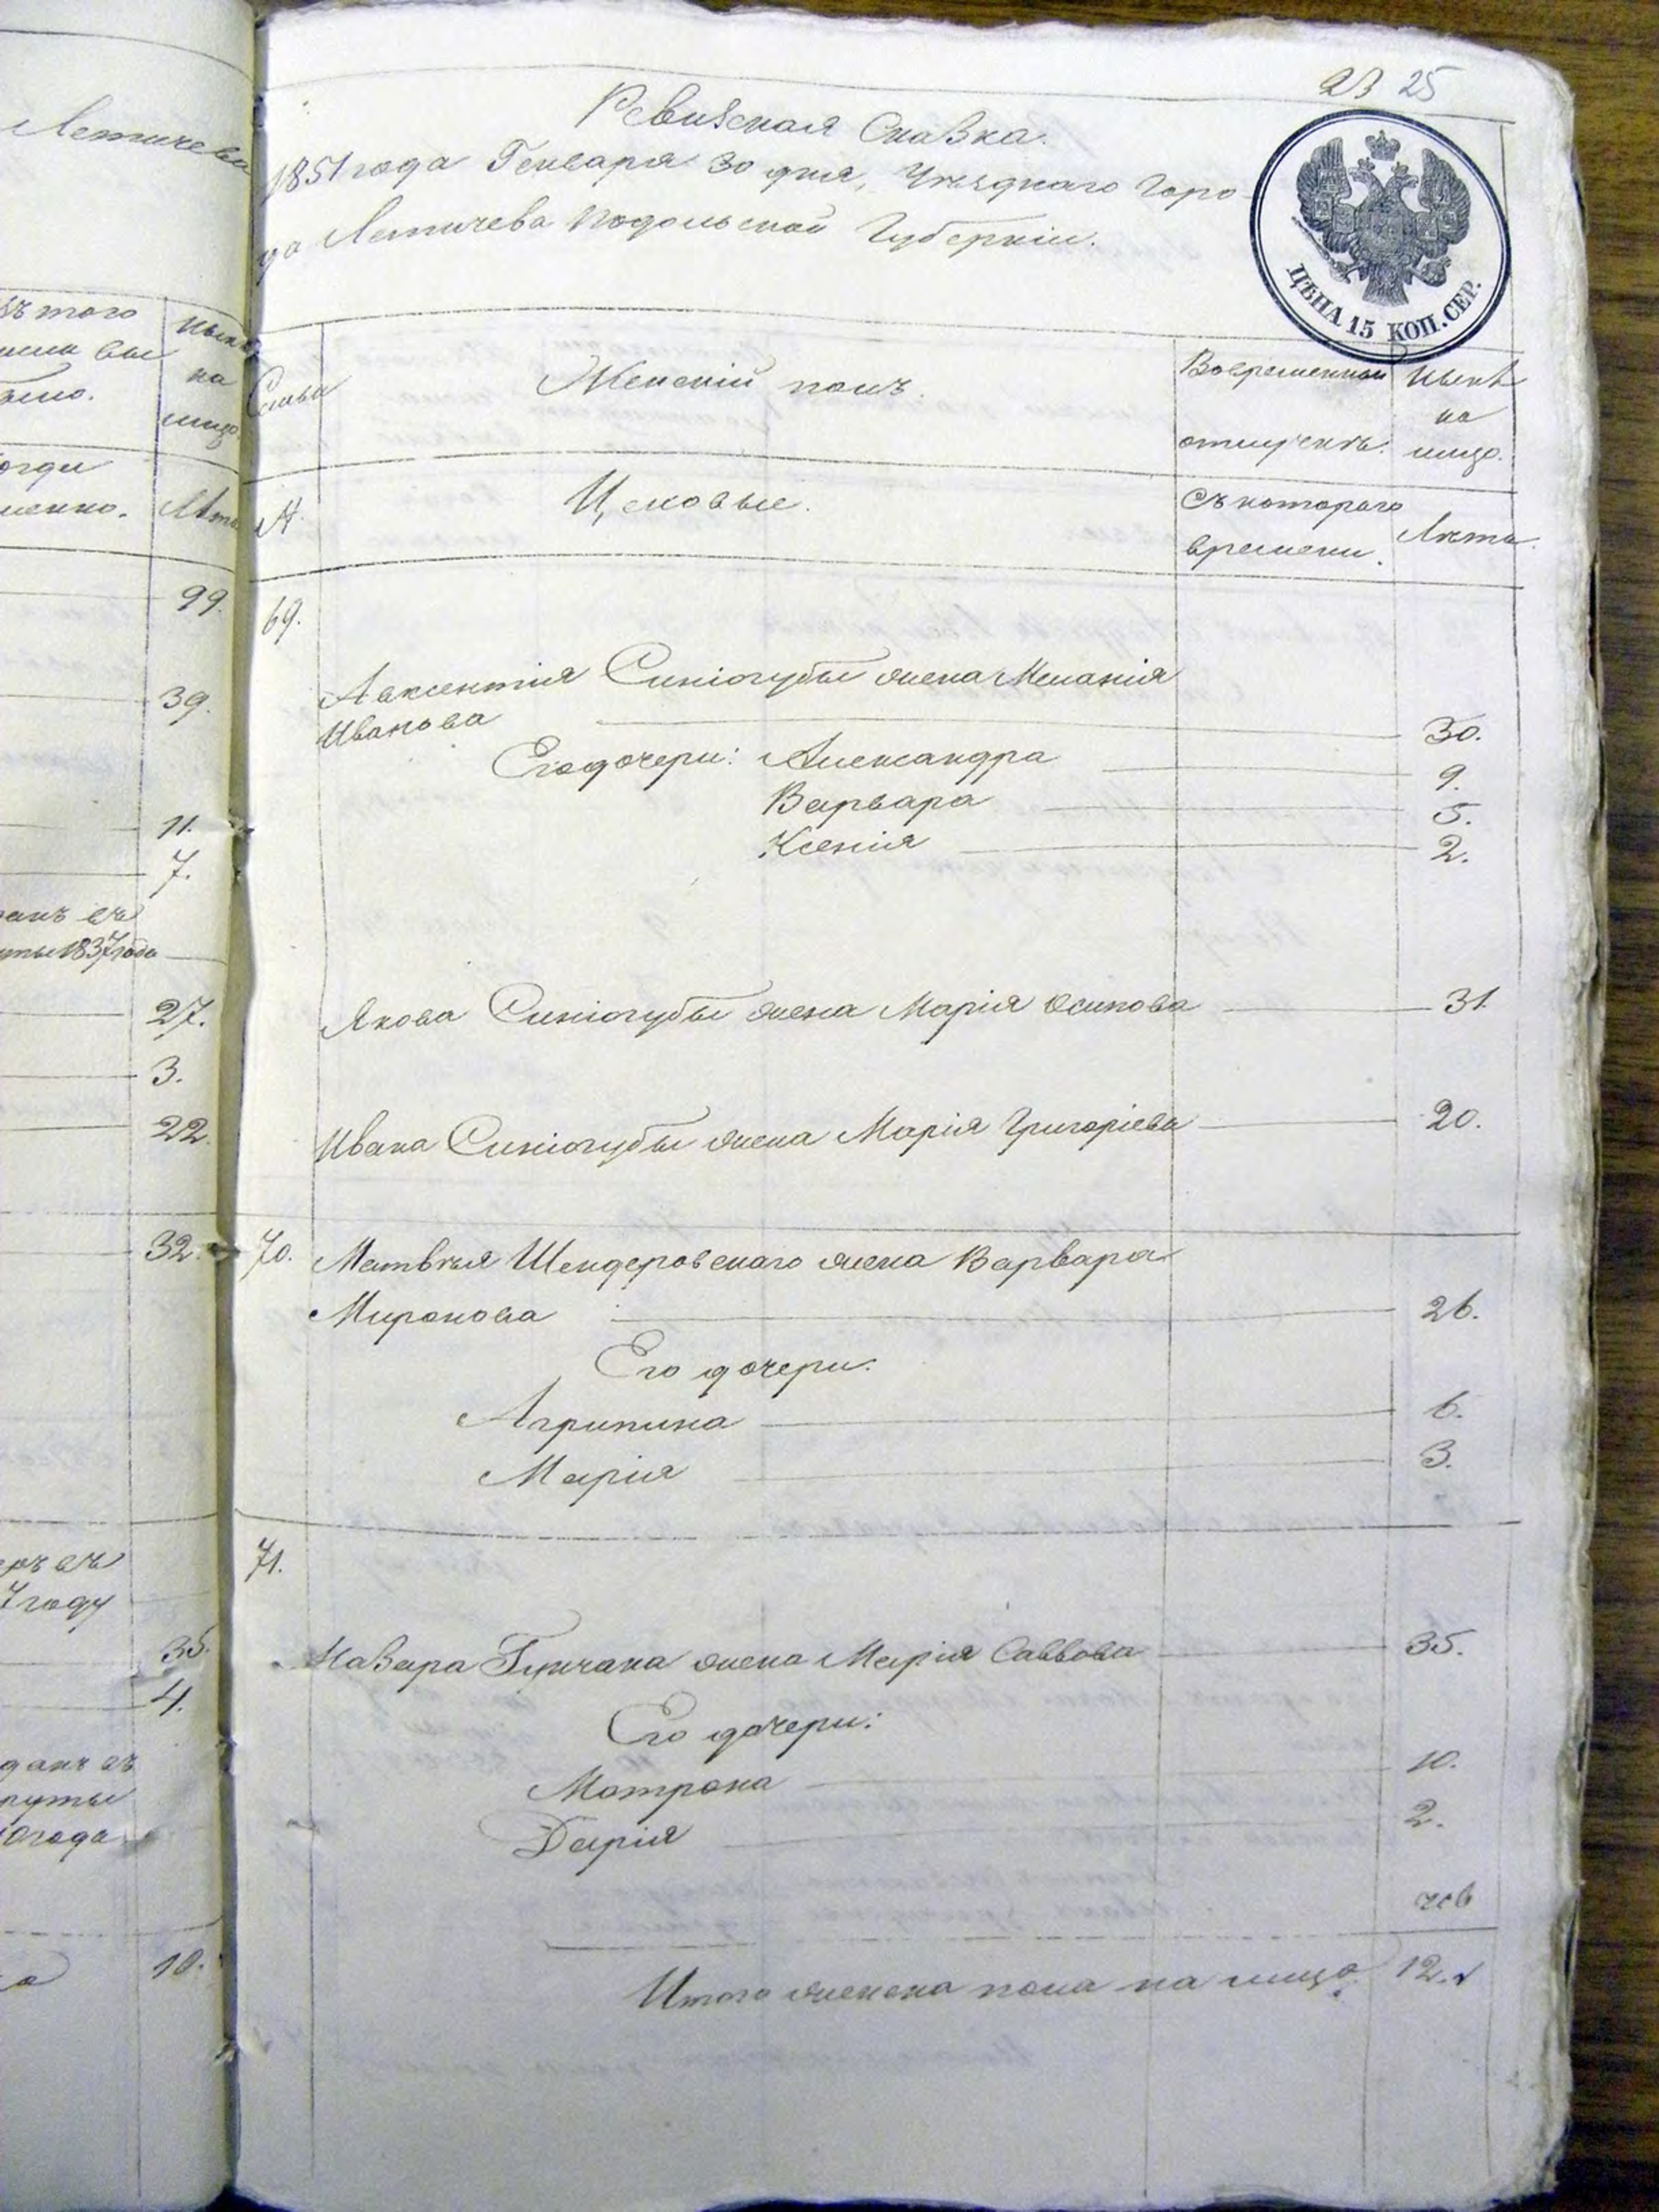 Летичева
23 25
Ревизская Сказка.
1851 года Генваря 30 дня, Уѣзднаго Горо-
да Летичева Подольской Губерніи.
ЦѢНА 15 КОП. СЕР.
Семьи
Женскій полъ.
Во временной
отлучкѣ.
Нынѣ
на
лицо.
№.
Цеховые.
Съ котораго
времени.
Лѣта.
69.
Авксентія Синіогубы жена Меланія
Иванова 30.
Его дочери: Александра 9.
Варвара 5.
Ксенія 2.
Якова Синіогубы жена Марія Осипова 31.
Ивана Синіогубы жена Марія Григоріева 20.
70. Матвѣя Шендеровскаго жена Варвара
Миронова 26.
Его дочери:
Агрипина 6.
Марія 3.
71.
Назара Гунчака жена Марія Саввова 35.
Его дочери:
Мотрона 10.
Дарія 2.
чел
Итого женска пола на лицо 12.
нынѣ
на
лицо.
Лѣта
99.
39.
11.
7.
1837 года
27.
3.
22.
32.
году
35.
4.
года
10.